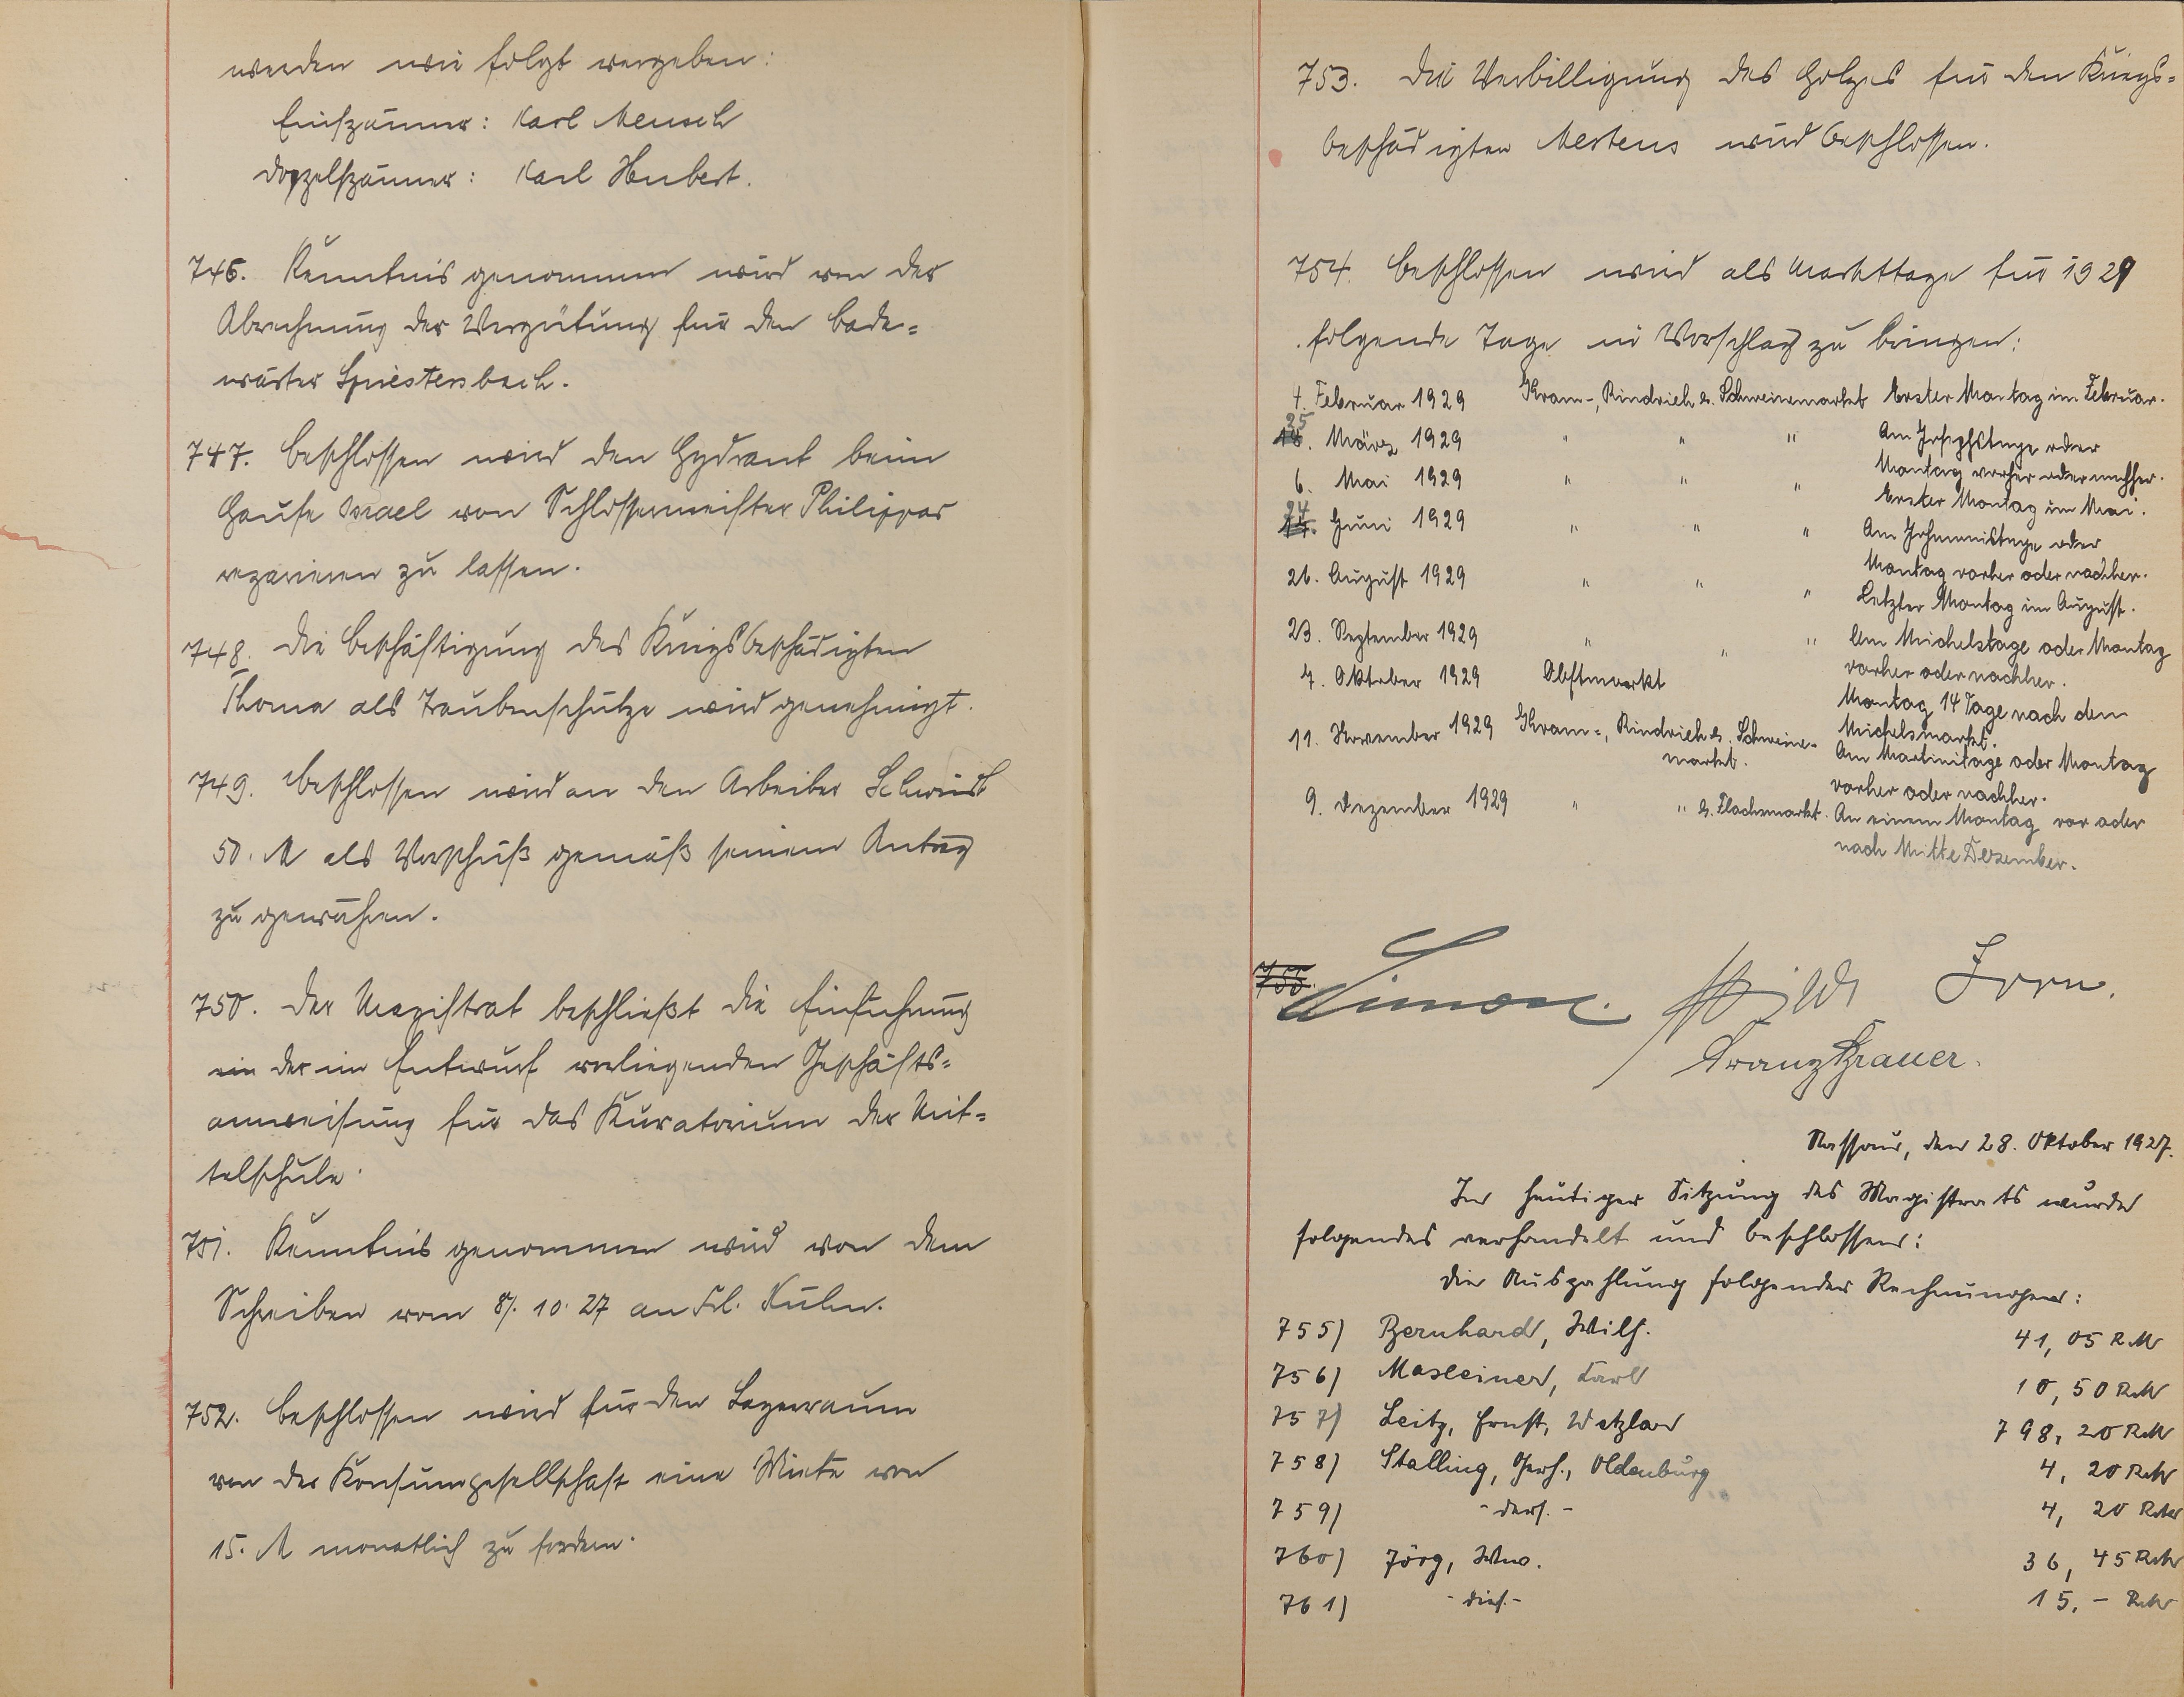 werden wie folgt vergeben:
Einspänner: Karl Mensch
Doppelspänner: Karl Hubert.
746. Kenntnis genommen wird von der
Abrechnung der Vergütung für den Bade=
wärter Spriestersbach.
747. Beschlossen wird den Hydrant beim
Hause Israel von Schlossermeister Philippar
reparieren zu lassen.
748. Die Beschäftigung des Kriegsbeschädigten
Thoma als Traubenschütze wird genehmigt.
749. Beschlossen wird an den Arbeiter
50. M als Vorschuß gemäß seinem Antrag
zu gewähren.
750. Der Magistrat beschließt die Einführung
der im Entwurf vorliegenden Geschäfts=
anweisung für das Kuratorium der Mit=
telschule.
751. Kenntnis genommen wird von dem
Schreiben vom 8/. 10. 27 an Frl. Kuhn.
752. Beschlossen wird für den Lagerraum
von der Konsumgesellschaft eine Miete von
15. M monatlich zu fordern.
753. Die Verbilligung des Holzes für den Kriegs=
beschädigten Mertens wird beschlossen.
754. Beschlossen wird als Markttage für 1929
folgende Tage in Vorschlag zu bringen:
4. Februar 1929 Kram-, Rindvieh u. Schweinemarkt Erster Montag im Februar.
25. März 1929 " " " Am Josephstage oder
Montag vorher oder nachher.
6. Mai 1929 " " " Erster Montag im Mai.
24. Juni 1929 " " " Am Johannistage oder
Montag vorher oder nachher.
26. August 1929 " " " Letzter Montag im August.
23. September 1929 " " " Am Michelstage oder Montag
vorher oder nachher.
7. Oktober 1929 Obstmarkt Montag 14 Tage nach dem
Michelsmarkt.
11. November 1929 Kram=, Rindvieh u. Schweine-
markt. Am Martinitage oder Montag
vorher oder nachher.
9. Dezember 1929 " " u. Flachsmarkt. An einem Montag vor oder
nach Mitte Dezember.
755.
Simon. Zorn.
Franz Brauer.
Nassau, den 28. Oktober 1927.
In heutiger Sitzung des Magistrats wurde
folgendes verhandelt und beschlossen:
Die Auszahlung folgender Rechnungen:
755) Bernhard, Wilh. 41,05 RM
756) Masleiner, Karl 10,50 RM
757) Leitz, Ernst, Wetzlar 798,20 RM
758) Stalling, Gerh., Oldenburg 4,20 RM
759) - ders. - 4,20 RM
760) Jörg, Wwe. 36,45 RM
761) - dies. - 15.- RM